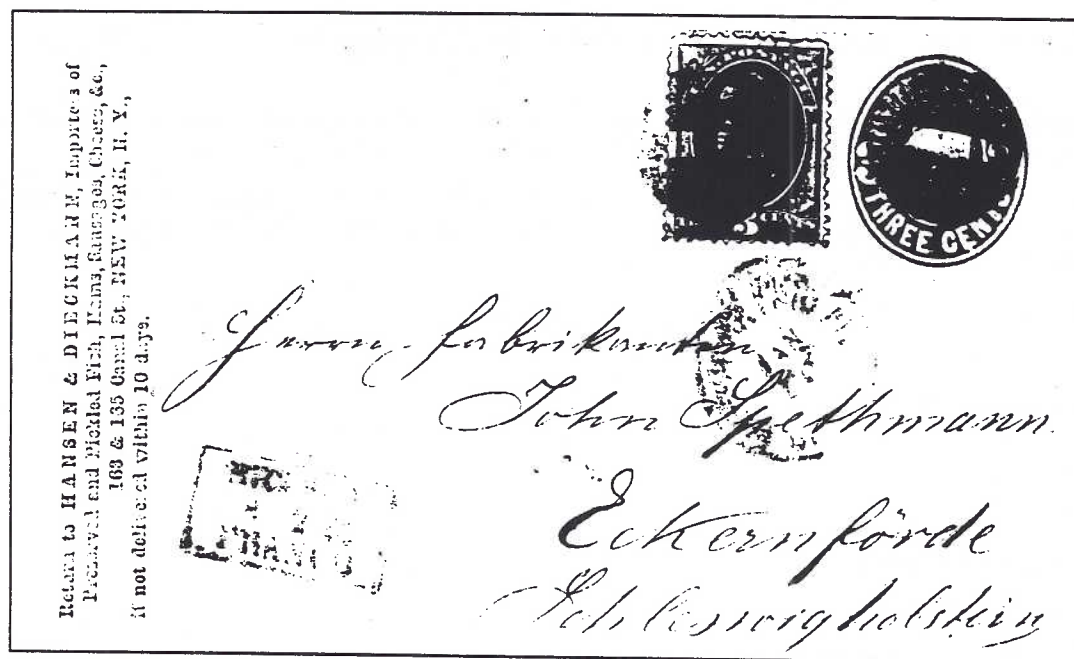 Return to HANSEN & DIECKMANN, Importers of
Preserved and Pickled Fish, Hams, Sausages, Cheese, &c.,
168 & 135 Canal St., NEW YORK, N. Y.,
if not delivered within 10 days.
3 CENTS
THREE CENTS
Herrn Fabrikanten
John Spethmann
Eckernförde
Schleswigholstein